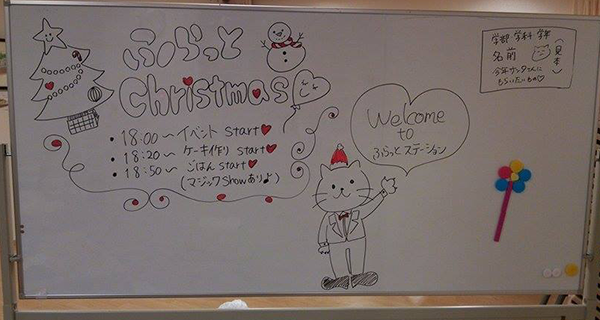 ふらっと
Christmas
・18:00〜 イベント start
・18:20〜 ケーキ作り start
・18:50〜 ごはん start
(マジックshowあり♪)
Welcome
to
ふらっとステーション
学部 学科 学年
名前
今年サンタさんに
もらいたいもの♡
(見本)